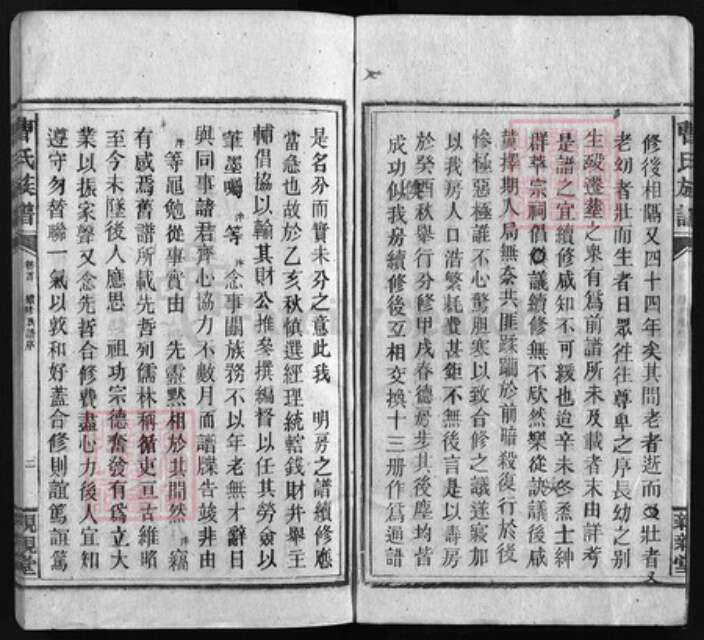 修後相隔又四十四年矣其間老者逝而壯者又
老幼者壯而生者日眾往往尊卑之序長幼之別
生歿遷塟之果有為前譜所未及載者末由詳考
是譜之宜續修咸知不可緩也迨辛未冬烝士紳
群萃宗祠倡議續修無不欣然樂從詇議後咸
黃擇期入局無奈共匪蹂躪於前暗殺復行於後
慘極惡極誰不心驚胆寒以致合修之議遂寢加
以我房人口浩繁耗費甚鉅不無後言是以壽房
於癸酉秋舉行分修甲戌春德房步其後塵均皆
成功似我房續修後互相交換十三册作為通譜
曹氏族譜
親親堂
是名分而實未分之意此我 明房之譜續修應
當急也故於乙亥秋慎選經理統轄錢財幷舉主
輔倡協以輸其財公推參撰編督以任其勞僉以
筆墨囑 泮 等 泮 念事關族務不以年老無才辭日
與同事諸君齊心協力不數月而譜牒告竣非由
泮 等黽勉從事實由 先靈默相於其間然 泮 竊
有感焉舊譜所載先哲列儒林稱循吏亘古維昭
至今未墜後人應思 祖功宗德奮發有為立大
業以振家聲又念先哲合修費盡心力後人宜知
遵守勿替聯一氣以敦和好蓋合修則誼篤誼篤
曹氏族譜
卷首 續修族譜序
二
親親堂